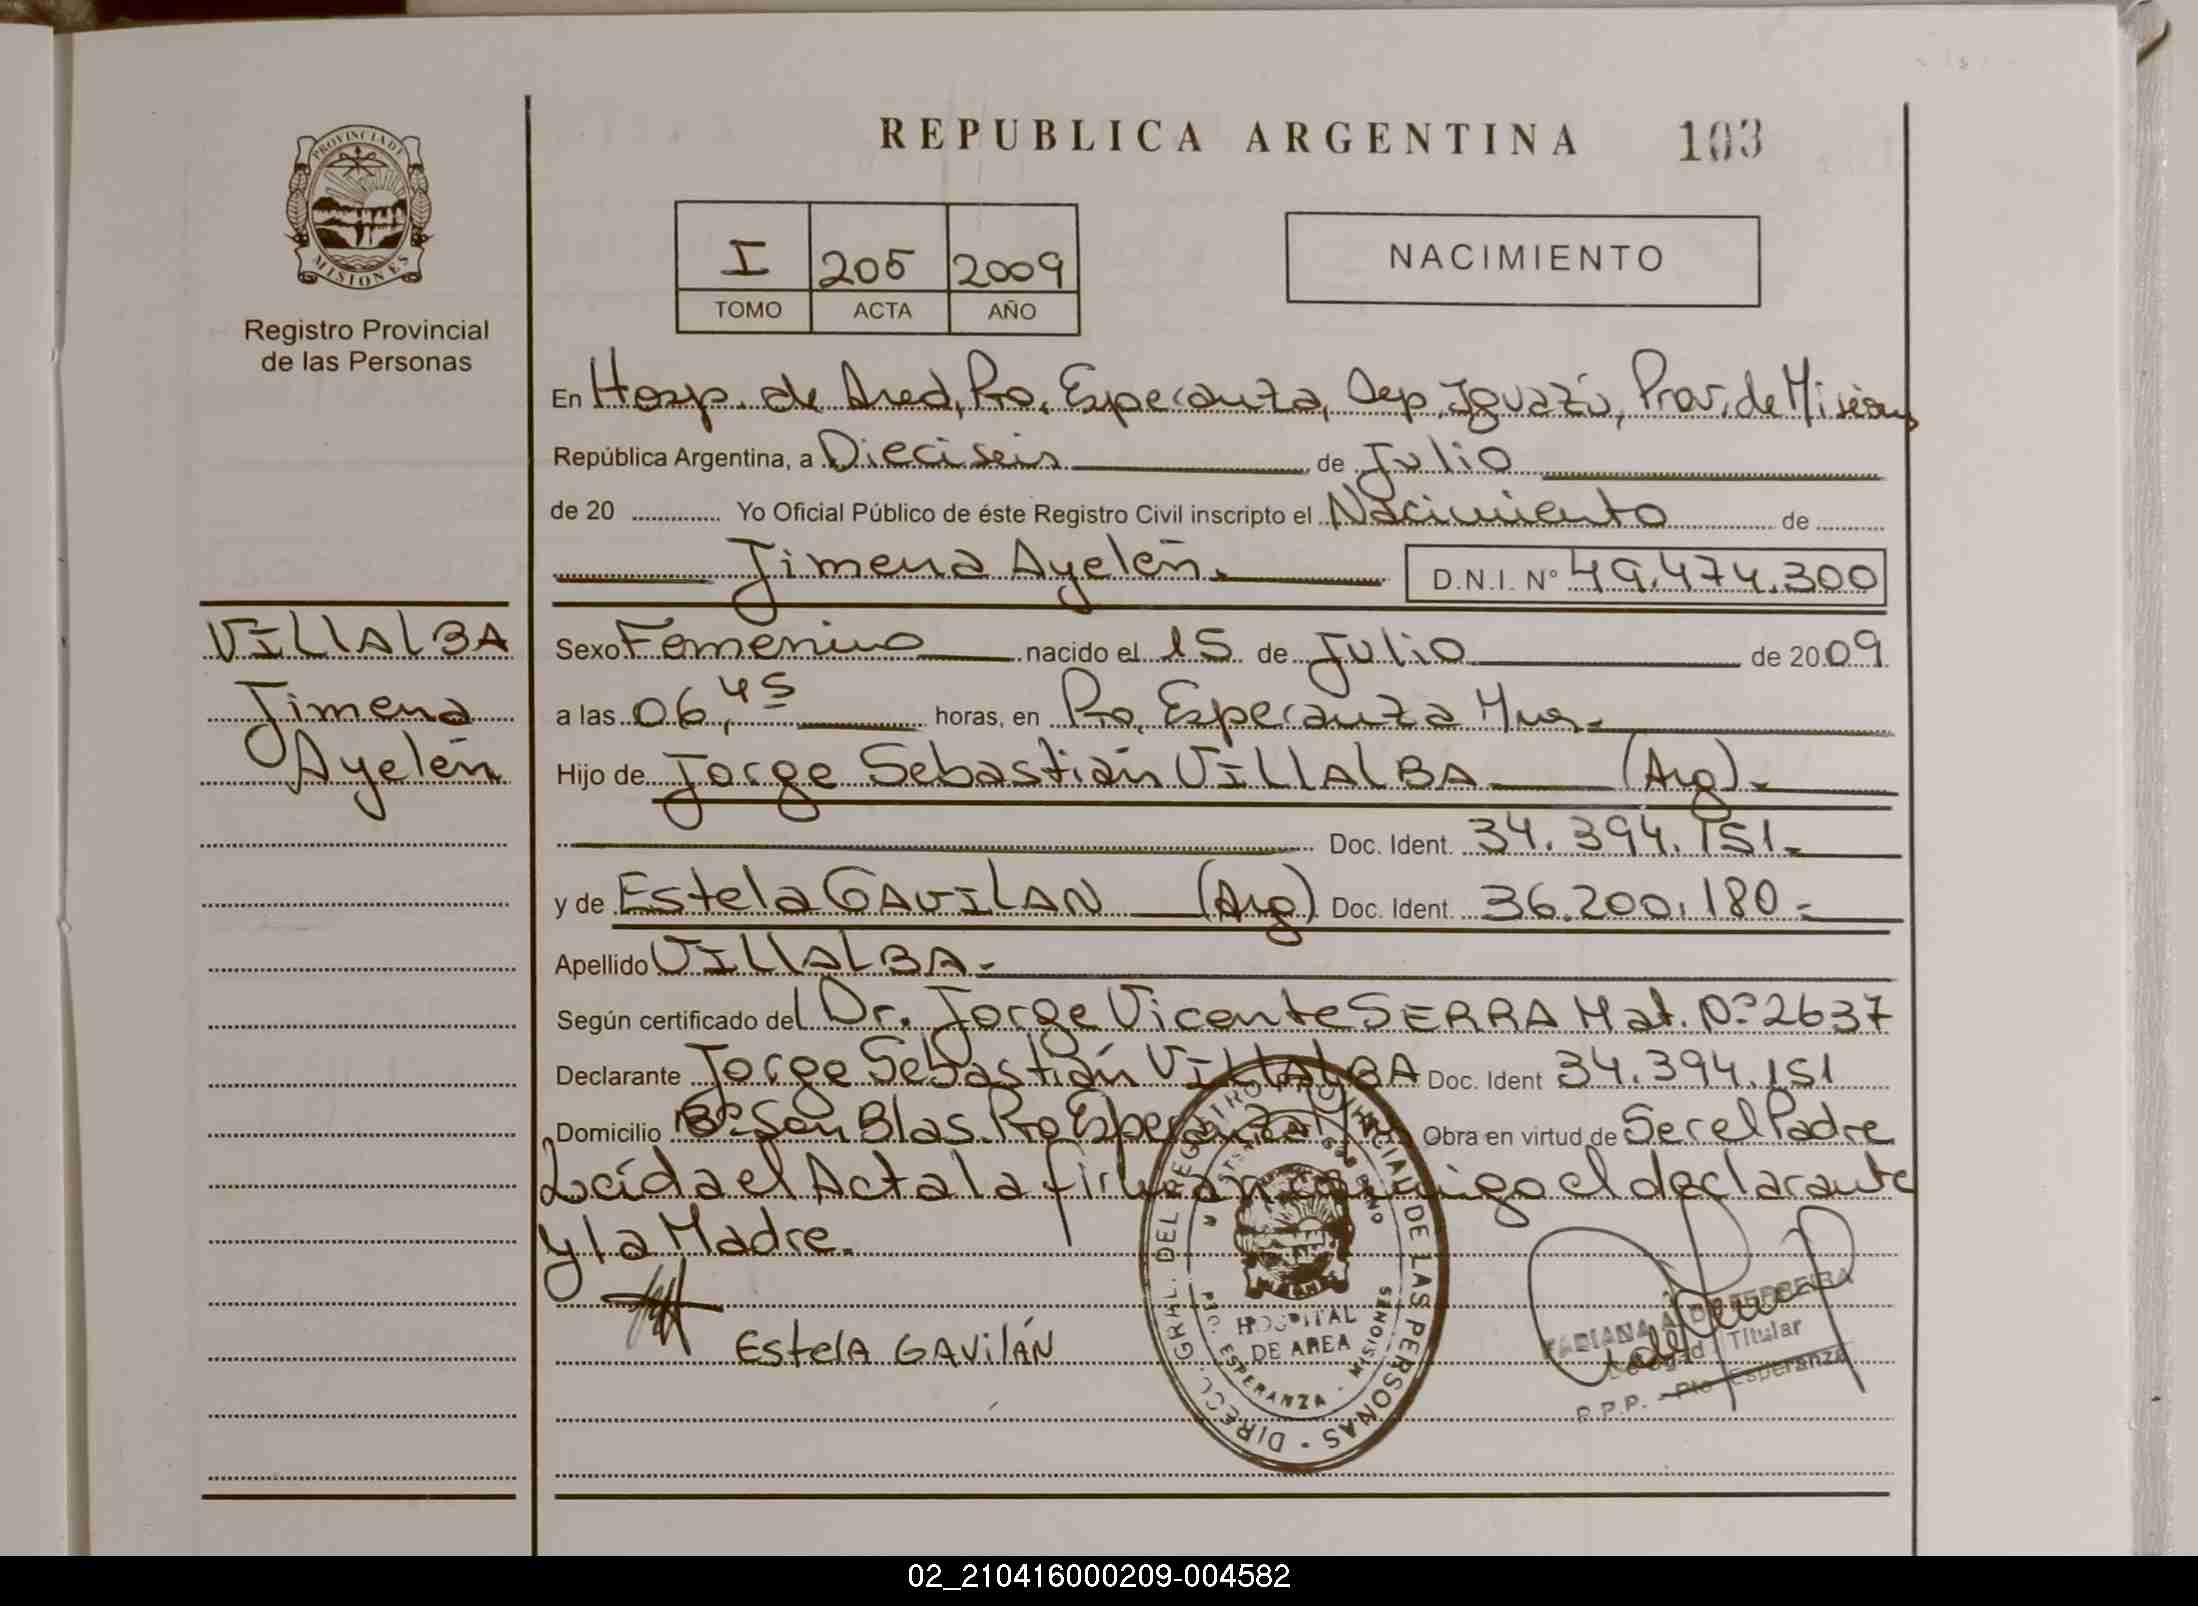 REPUBLICA ARGENTINA 103
PROVINCIA DE MISIONES
Registro Provincial
de las Personas
I 205 2009
TOMO ACTA AÑO
NACIMIENTO
En Hosp. de Area, Pto. Esperanza, Dep. Iguazú, Prov. de Misiones
República Argentina, a Dieciseis de Julio
de 20 Yo Oficial Público de éste Registro Civil inscripto el Nacimiento de
Jimena Ayelén. D.N.I. Nº 49.474.300
VILLALBA
Jimena
Ayelén
Sexo Femenino nacido el 15 de Julio de 2009
a las 06,45 horas, en Pto. Esperanza Mnes.
Hijo de Jorge Sebastián VILLALBA (Arg).
Doc. Ident. 34.394.151.
y de Estela GAVILAN (Arg) Doc. Ident. 36.200.180.
Apellido VILLALBA.
Según certificado del Dr. Jorge Vicente SERRA Mat. Nº 2637
Declarante Jorge Sebastián VILLALBA Doc. Ident 34.394.151
Domicilio Bº San Blas. Pto Esperanza Obra en virtud de Ser el Padre
Leída el Acta la firman conmigo el declarante
y la Madre.
Estela GAVILÁN
DIRECC. GRAL. DEL REGISTRO PROVINCIAL DE LAS PERSONAS
HOSPITAL
DE AREA
PTO. ESPERANZA - MISIONES
FABIANA A. D FERREIRA
Titular
R.P.P. - Pto Esperanza
02_210416000209-004582